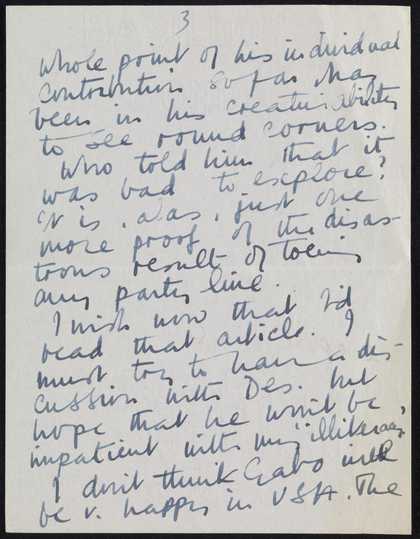 3
whole point of his individual
contribution so far has
been in his creative ability
to see round corners.
Who told him that it
was bad to explore?
It is, alas, just one
more proof of the disas-
trous result of toeing
any party line.
I wish now that I'd
read that article. I
must try to have a dis-
cussion with Des. but
hope that he won't be
impatient with my "illiteracy"
I don't think Gabo will
be v. happy in USA. The